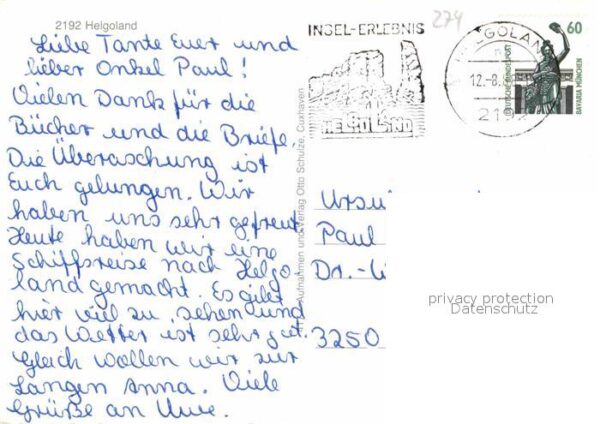 2192 Helgoland
Liebe Tante Euer und
lieber Onkel Paul!
Vielen Dank für die
Bücher und die Briefe.
Die Überaschung ist
Euch gelungen. Wir
haben uns sehr gefreut.
Heute haben wir eine
Schiffsreise nach Helgo-
land gemacht. Es gibt
hier viel zu sehen und
das Wetter ist sehr gut.
Gleich wollen wir zur
Langen Anna. Viele
Grüße an Uwe.
Aufnahmen und Verlag Otto Schulze, Cuxhaven
274
INSEL-ERLEBNIS
HELGOLAND
HELGOLAN
12.-8.
219
60
DEUTSCHE BUNDESPOST
BAVARIA MÜNCHEN
Ursu
Paul
Dr.-
3250
privacy protection
Datenschutz